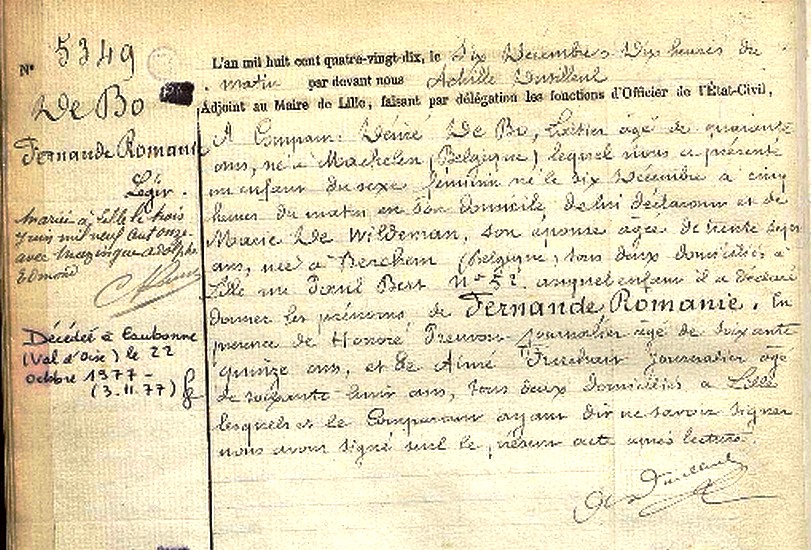 N° 5349
De Bo
Fernande Romanie
Légit.
Mariée à Lille le trois
Juin mil neuf cent onze
avec Mazingue Adolphe
Edmond
Décédée à Eaubonne
(Val d'Oise) le 22
octobre 1977 -
(3.11.77)
L'an mil huit cent quatre-vingt-dix, le Six Décembre à Dix heures du
matin par devant nous Achille
Adjoint au Maire de Lille, faisant par délégation les fonctions d'Officier de l'État-Civil,
A Comparu: Désiré De Bo, âgé de quarante
ans, né à Machelen (Belgique) lequel nous a présenté
un enfant du sexe féminin né le six Décembre à cinq
heures du matin en son domicile de lui déclarant et de
Marie De Wildeman, son épouse âgée de trente sept
ans, née à Berchem (Belgique), tous deux domiciliés à
Lille rue Paul Bert n° 52 auquel enfant il a déclaré
donner les prénoms de Fernande, Romanie. En
présence de Honoré journalier âgé de soixante
quinze ans, et de Aimé journalier âgé
de soixante huit ans, tous deux domiciliés à Lille
lesquels et le Comparant ayant dit ne savoir signer
nous avons signé seul le présent acte après lecture.